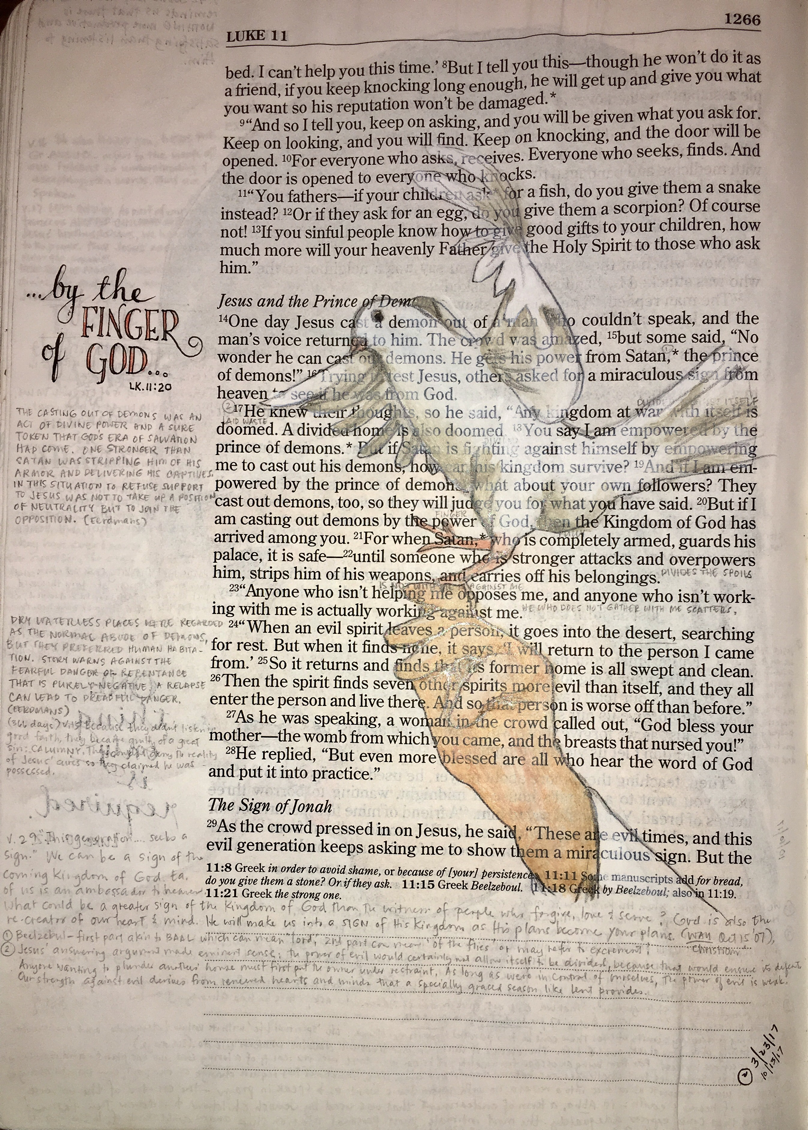 1266
LUKE 11
bed. I can't help you this time.' 8But I tell you this—though he won't do it as
a friend, if you keep knocking long enough, he will get up and give you what
you want so his reputation won't be damaged.*
9"And so I tell you, keep on asking, and you will be given what you ask for.
Keep on looking, and you will find. Keep on knocking, and the door will be
opened. 10For everyone who asks, receives. Everyone who seeks, finds. And
the door is opened to everyone who knocks.
11"You fathers—if your children ask* for a fish, do you give them a snake
instead? 12Or if they ask for an egg, do you give them a scorpion? Of course
not! 13If you sinful people know how to give good gifts to your children, how
much more will your heavenly Father give the Holy Spirit to those who ask
him."
Jesus and the Prince of Demons
14One day Jesus cast a demon out of a man who couldn't speak, and the
man's voice returned to him. The crowd was amazed, 15but some said, "No
wonder he can cast out demons. He gets his power from Satan,* the prince
of demons!" 16Trying to test Jesus, others asked for a miraculous sign from
heaven to see if he was from God.
17He knew their thoughts, so he said, "Any kingdom at war with itself is
doomed. A divided home is also doomed. 18You say I am empowered by the
prince of demons.* But if Satan is fighting against himself by empowering
me to cast out his demons, how can his kingdom survive? 19And if I am em-
powered by the prince of demons, what about your own followers? They
cast out demons, too, so they will judge you for what you have said. 20But if I
am casting out demons by the power of God, then the Kingdom of God has
arrived among you. 21For when Satan,* who is completely armed, guards his
palace, it is safe—22until someone who is stronger attacks and overpowers
him, strips him of his weapons, and carries off his belongings. DIVIDES THE SPOILS
23"Anyone who isn't helping me opposes me, and anyone who isn't work-
ing with me is actually working against me. HE WHO DOES NOT GATHER WITH ME SCATTERS.
24"When an evil spirit leaves a person, it goes into the desert, searching
for rest. But when it finds none, it says, 'I will return to the person I came
from.' 25So it returns and finds that its former home is all swept and clean.
26Then the spirit finds seven other spirits more evil than itself, and they all
enter the person and live there. And so that person is worse off than before."
27As he was speaking, a woman in the crowd called out, "God bless your
mother—the womb from which you came, and the breasts that nursed you!"
28He replied, "But even more blessed are all who hear the word of God
and put it into practice."
The Sign of Jonah
29As the crowd pressed in on Jesus, he said, "These are evil times, and this
evil generation keeps asking me to show them a miraculous sign. But the
11:8 Greek in order to avoid shame, or because of [your] persistence. 11:11 Some manuscripts add for bread,
do you give them a stone? Or if they ask. 11:15 Greek Beelzeboul. 11:18 Greek by Beelzeboul; also in 11:19.
11:21 Greek the strong one.
...by the
FINGER
of GOD...
LK.11:20
THE CASTING OUT OF DEMONS WAS AN
ACT OF DIVINE POWER AND A SURE
TOKEN THAT GODS ERA OF SALVATION
HAD COME. ONE STRONGER THAN
SATAN WAS STRIPPING HIM OF HIS
ARMOR AND DELIVERING HIS CAPTIVES.
IN THIS SITUATION TO REFUSE SUPPORT
TO JESUS WAS NOT TO TAKE UP A POSITION
OF NEUTRALITY BUT TO JOIN THE
OPPOSITION. (Eerdmans)
DRY WATERLESS PLACES WERE REGARDED
AS THE NORMAL ABODE OF DEMONS,
BUT THEY PREFERRED HUMAN HABITA-
TION. STORY WARNS AGAINST THE
FEARFUL DANGER OF REPENTANCE
THAT IS PURELY NEGATIVE; A RELAPSE
CAN LEAD TO DREADFUL DANGER.
(EERDMANS)
of Jesus' cures so they claimed he was
possessed.
V. 29 "This generation... seeks a
sign." We can be a sign of the
coming Kingdom of God
of us is an ambassador
What could be a greater sign of the Kingdom of God than the witness of people who forgive, love & serve? Lord is also the
re-creator of our heart & mind. He will make us into a SIGN of His Kingdom as His plans become your plans. (WAY Oct 15 07),
① Beelzebul - first part akin to BAAL which can mean "lord," 2nd part can mean "of the flies" or may refer to excrement!
Christian
② Jesus' answering argument made eminent sense; the power of evil would certainly not allow itself to be divided, because that would ensure its defeat.
Anyone wanting to plunder another's house must first put the owner under restraint. As long as were in control of ourselves, the power of evil is weak.
Our strength against evil derives from renewed hearts and minds that a specially graced season like Lent provides.
3/23/17
10/13/17